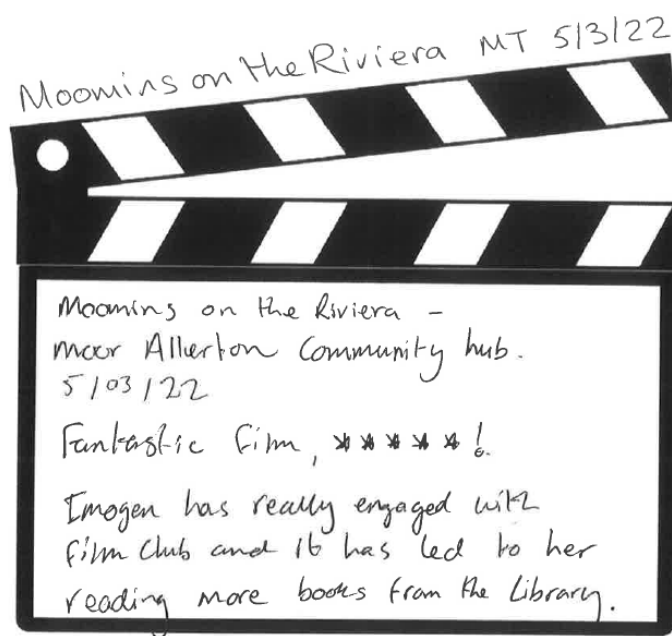 Moomins on the Riviera MT 5/3/22
Moomins on the Riviera –
Moor Allerton Community hub.
5/03/22
Fantastic film, ★★★★★!
Imogen has really engaged with
film club and it has led to her
reading more books from the Library.